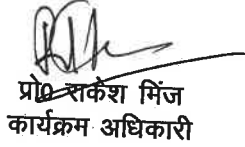 प्रो० राकेश मिंज
कार्यक्रम अधिकारी